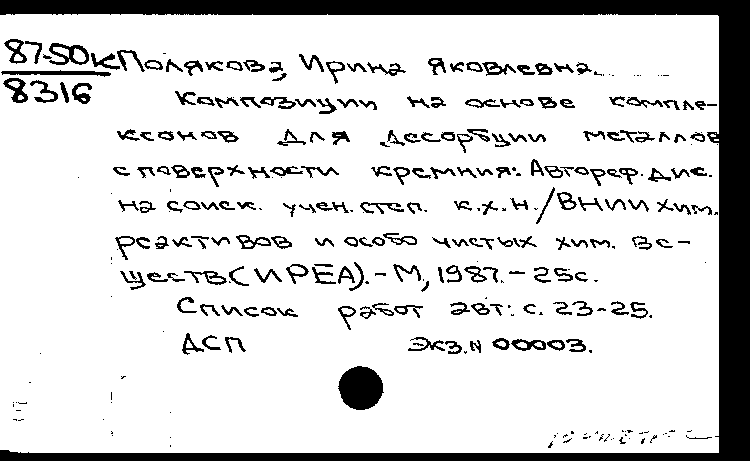 87-50к Полякова, Ирина Яковлевна.
8316 Композиции на основе компле-
ксонов для десорбции металлов
с поверхности кремния: Автореф. дис.
на соиск. учен. степ. к.х.н./ВНИИ хим.
реактивов и особо чистых хим. ве-
ществ (ИРЕА). - М, 1987. - 25с.
Список работ авт: с. 23-25.
ДСП Экз. N 00003.